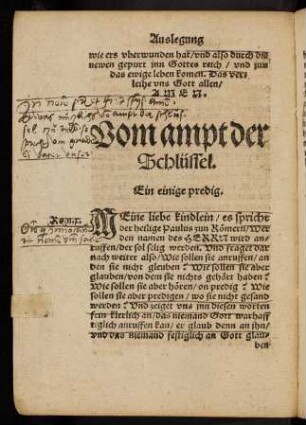 Auslegung
wie ers vberwunden hat/ vnd also durch die
newen gepurt inn Gottes reich/ vnd jnn
das ewige leben komen. Das ver-
leihe vns Gott allen/
A M E N.
Vom ampt der
Schlüssel.
Ein einige predig.
Rom. 10.
MEine liebe kindlein/ es spricht
der heilige Paulus zun Römern/ Wer
den namen des HERRN wird an-
ruffen/ der sol selig werden. Vnd fraget dar
nach weiter also/ Wie sollen sie anruffen/ an
den sie nicht gleuben? Wie sollen sie aber
glauben/ von dem sie nichts gehört haben?
Wie sollen sie aber hören/ on predig? Wie
sollen sie aber predigen/ wo sie nicht gesand
werden? Vnd zeiget vns jnn diesen worten
fein klerlich an/ das niemand Gott warhaff
tiglich anruffen kan/ er glaub denn an jhn/
vnd das niemand festiglich an Gott glau-
ben